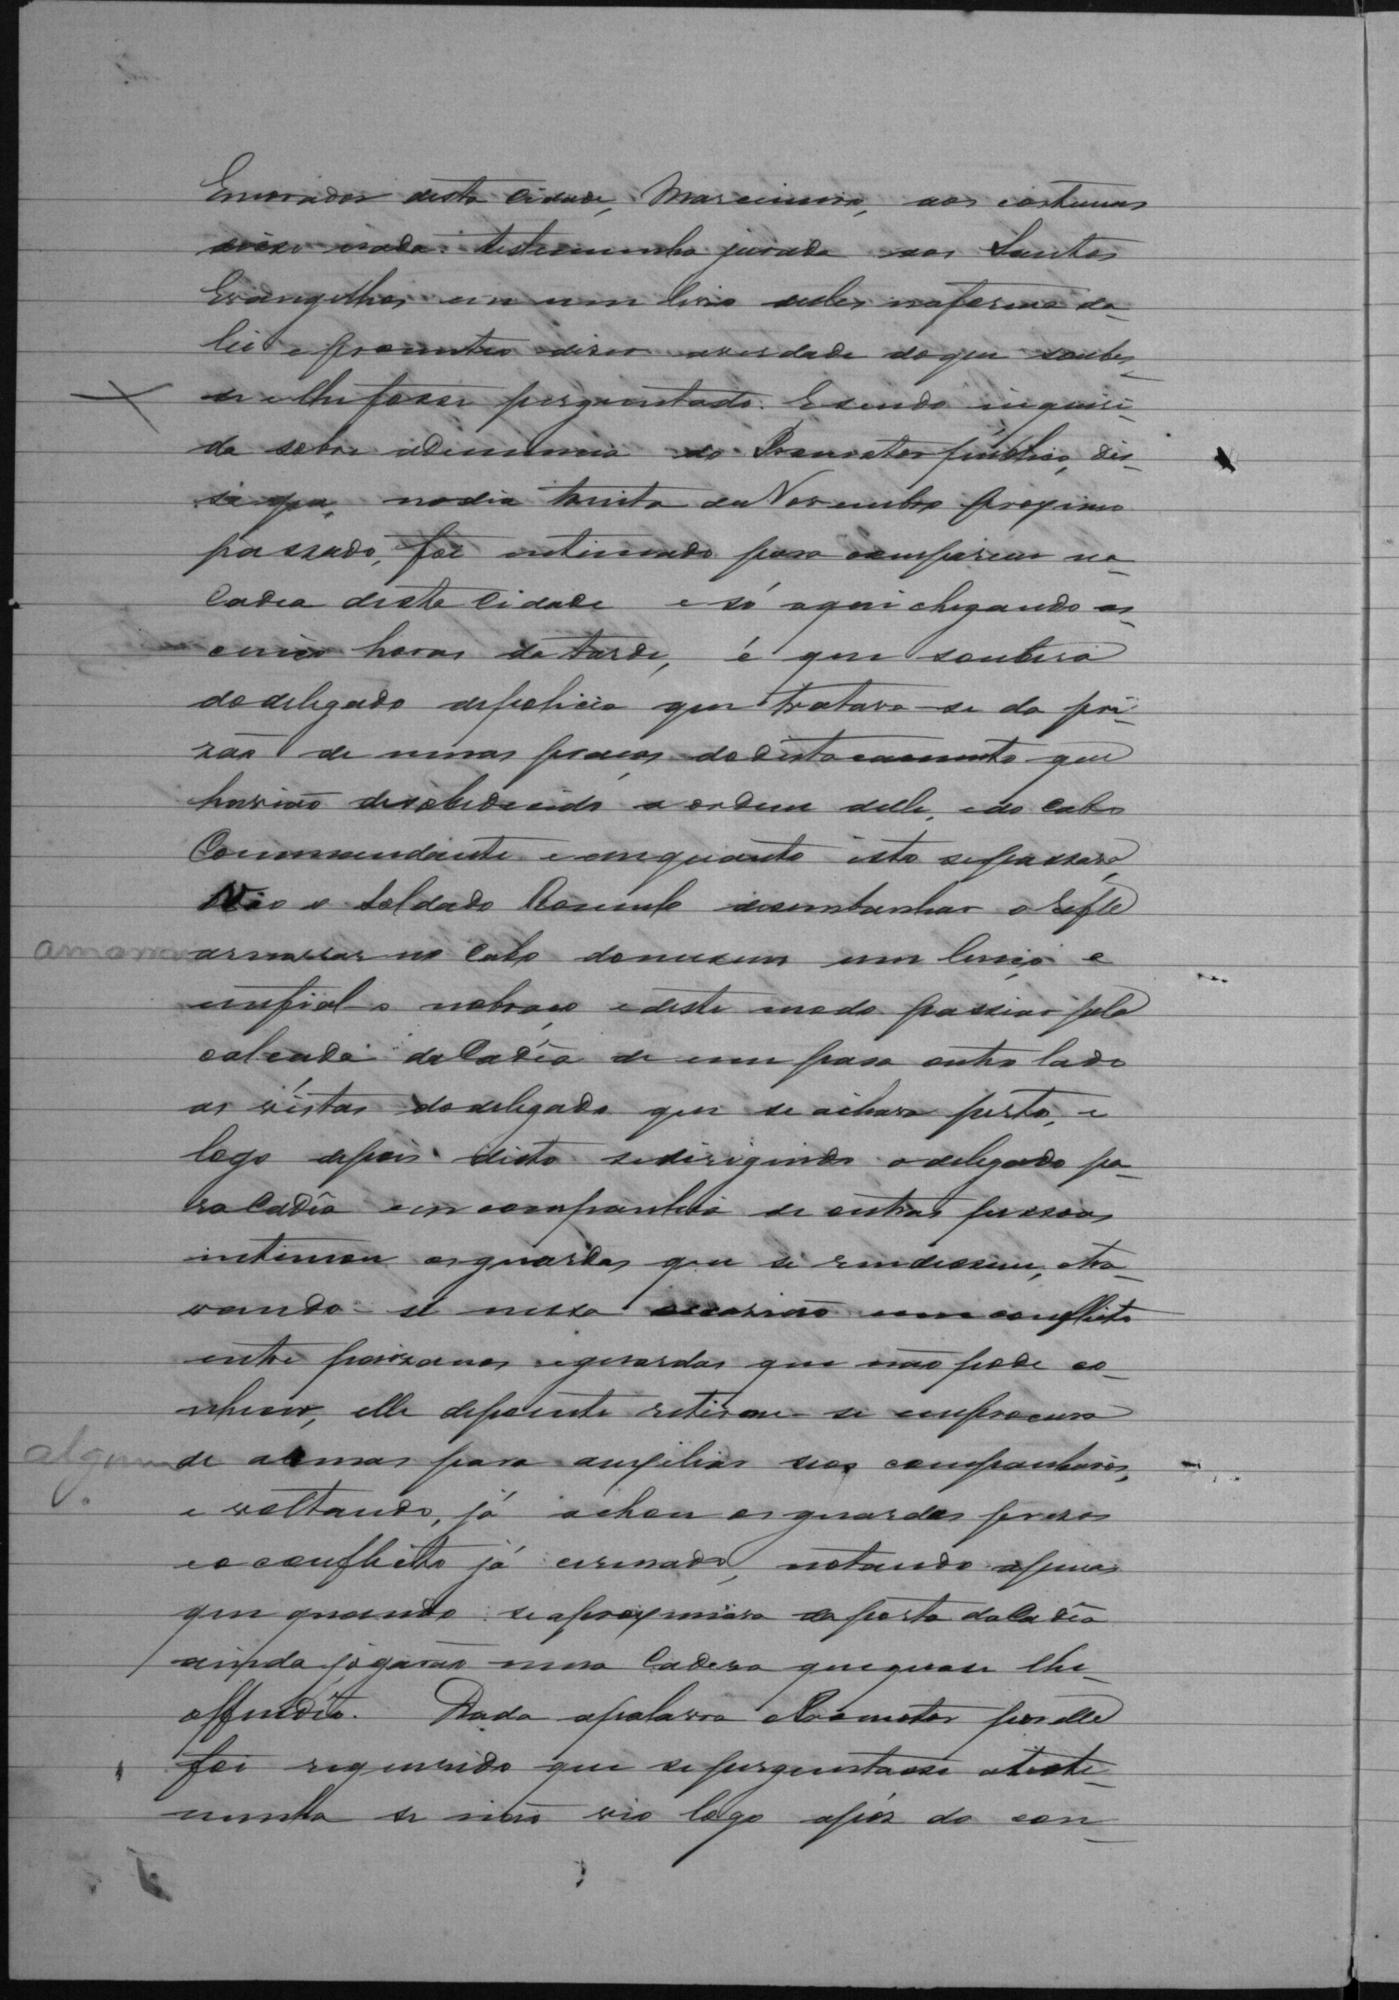 E morador desta Cidade, Marcineiro, aos costumes
disse nada: testemunha jurada aos Santos
Evangelhos em um livro delles na forma da
lei e prometteo dizer a verdade do que soubes-
se e lhe fosse perguntado. E sendo inquiri-
da sobre a denuncia do Promotor publico, dis-
se que, no dia trinta de Novembro proximo
passado, foi intimado para comparecer na
Cadea desta Cidade e só aqui chegando as
cinco horas da tarde, é que soubera
do delegado de policia que tratava-se da pri-
zão de umas praças do destacamento que
havião desobedecido a ordem delle, e do Cabo
Commandante e emquanto isto se passava,
Vio o Soldado Rosendo desembanhar o refle
amarrar no Cabo do mesmo um lenço e
enfial-o no braço e deste modo passiar pela
calçada da Cadêa de um para outro lado
as vistas do delegado que se achava perto, e
logo depois disto se dirigindo o delegado pa-
ra Cadêa em companhia de outras pessoas
intimou os guardas que se rendessem, tra-
vando-se nessa occazião um conflicto
entre paizanos e guardas que não pode co-
nhecer, elle depoente retirou-se em procura
de armas para auxiliar seos companheiros,
e voltando, já achou os guardas prezos
e o conflicto já serenado, notando apenas
que quando se aproximava da porta da Cadêa
ainda jogarão uma Cadeira que quase lhe
offendia. Dada a palavra o Promotor por elle
foi requerido que se perguntasse a teste-
munha se não vio logo após do con-
amarrar
algum